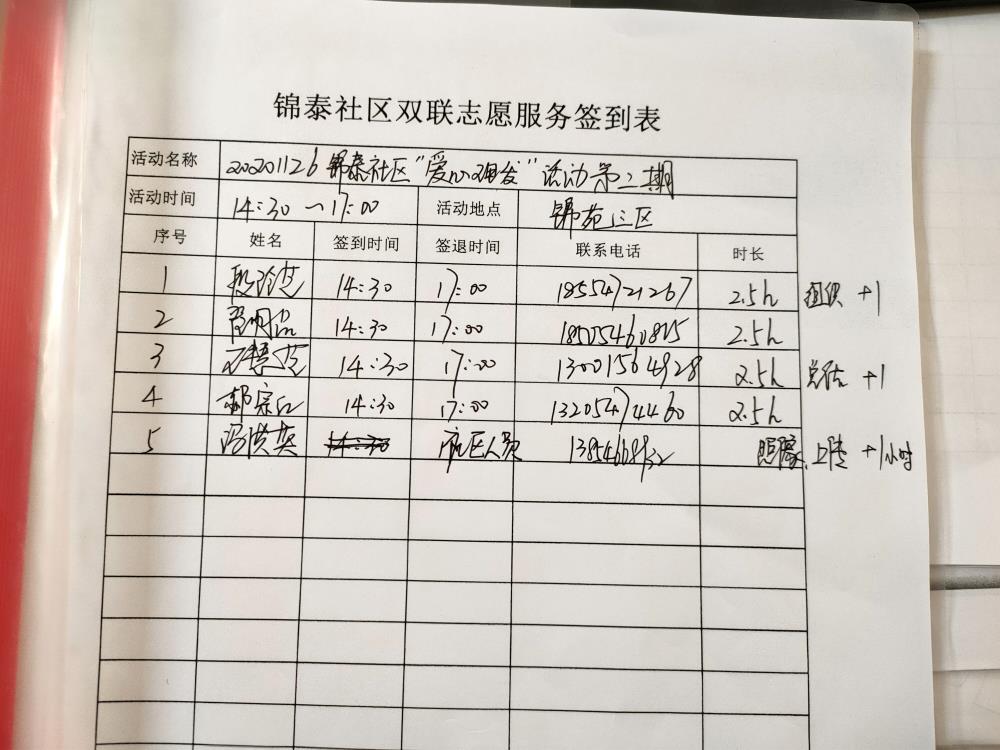 锦泰社区双联志愿服务签到表
活动名称 20201126 锦泰社区“爱心理发”活动第二期
活动时间 14:30 —17:00 活动地点 锦苑三区
序号 姓名 签到时间 签退时间 联系电话 时长
1 14:30 17:00 18554721267 2.5h 组织 +1
2 14:30 17:00 18005460815 2.5h
3 14:30 17:00 13001564928 2.5h 总结 +1
4 郝宗红 14:30 17:00 13205474460 2.5h
5 冯洪英 14:30 人员 照像、上传 +1小时